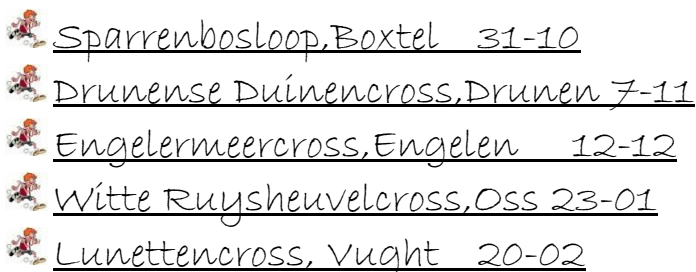 Sparrenbosloop,Boxtel 31-10
Drunense Duinencross,Drunen 7-11
Engelermeercross,Engelen 12-12
Witte Ruysheuvelcross,Oss 23-01
Lunettencross, Vught 20-02